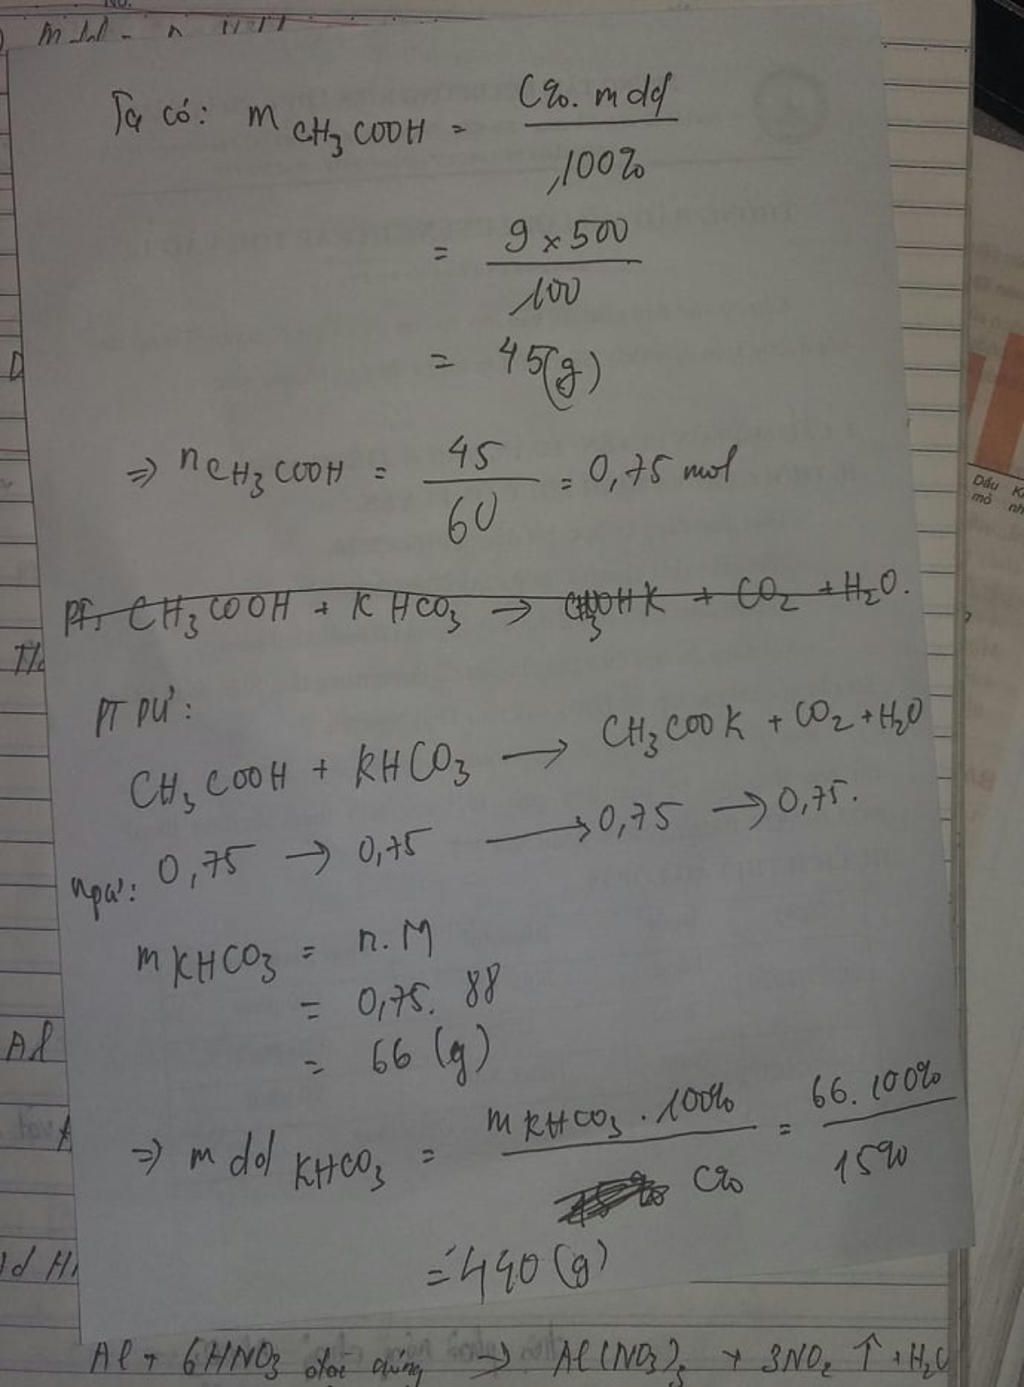 Ta có: m CH3COOH = C%. mdd / 100%
= 9 x 500 / 100
= 45(g)
=> nCH3COOH = 45 / 60 = 0,75 mol
PT: CH3COOH + KHCO3 → CH3OOHK + CO2 + H2O.
PTPƯ:
CH3COOH + KHCO3 → CH3COOK + CO2 + H2O
npư: 0,75 → 0,75 → 0,75 → 0,75.
mKHCO3 = n.M
= 0,75. 88
= 66 (g)
=> mdd KHCO3 = mKHCO3 . 100% / C% = 66. 100% / 15%
= 440 (g)
Al + 6HNO3 → Al(NO3)3 + 3NO2 ↑ + H2O
Dầu
mỏ